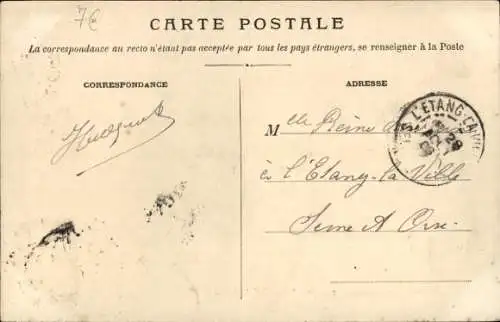 7€
CARTE POSTALE
La correspondance au recto n'étant pas acceptée par tous les pays étrangers, se renseigner à la Poste
CORRESPONDANCE
ADRESSE
Melle Reine
L'ETANG LA VILLE
à l'Etang-la-Ville
Seine & Oise